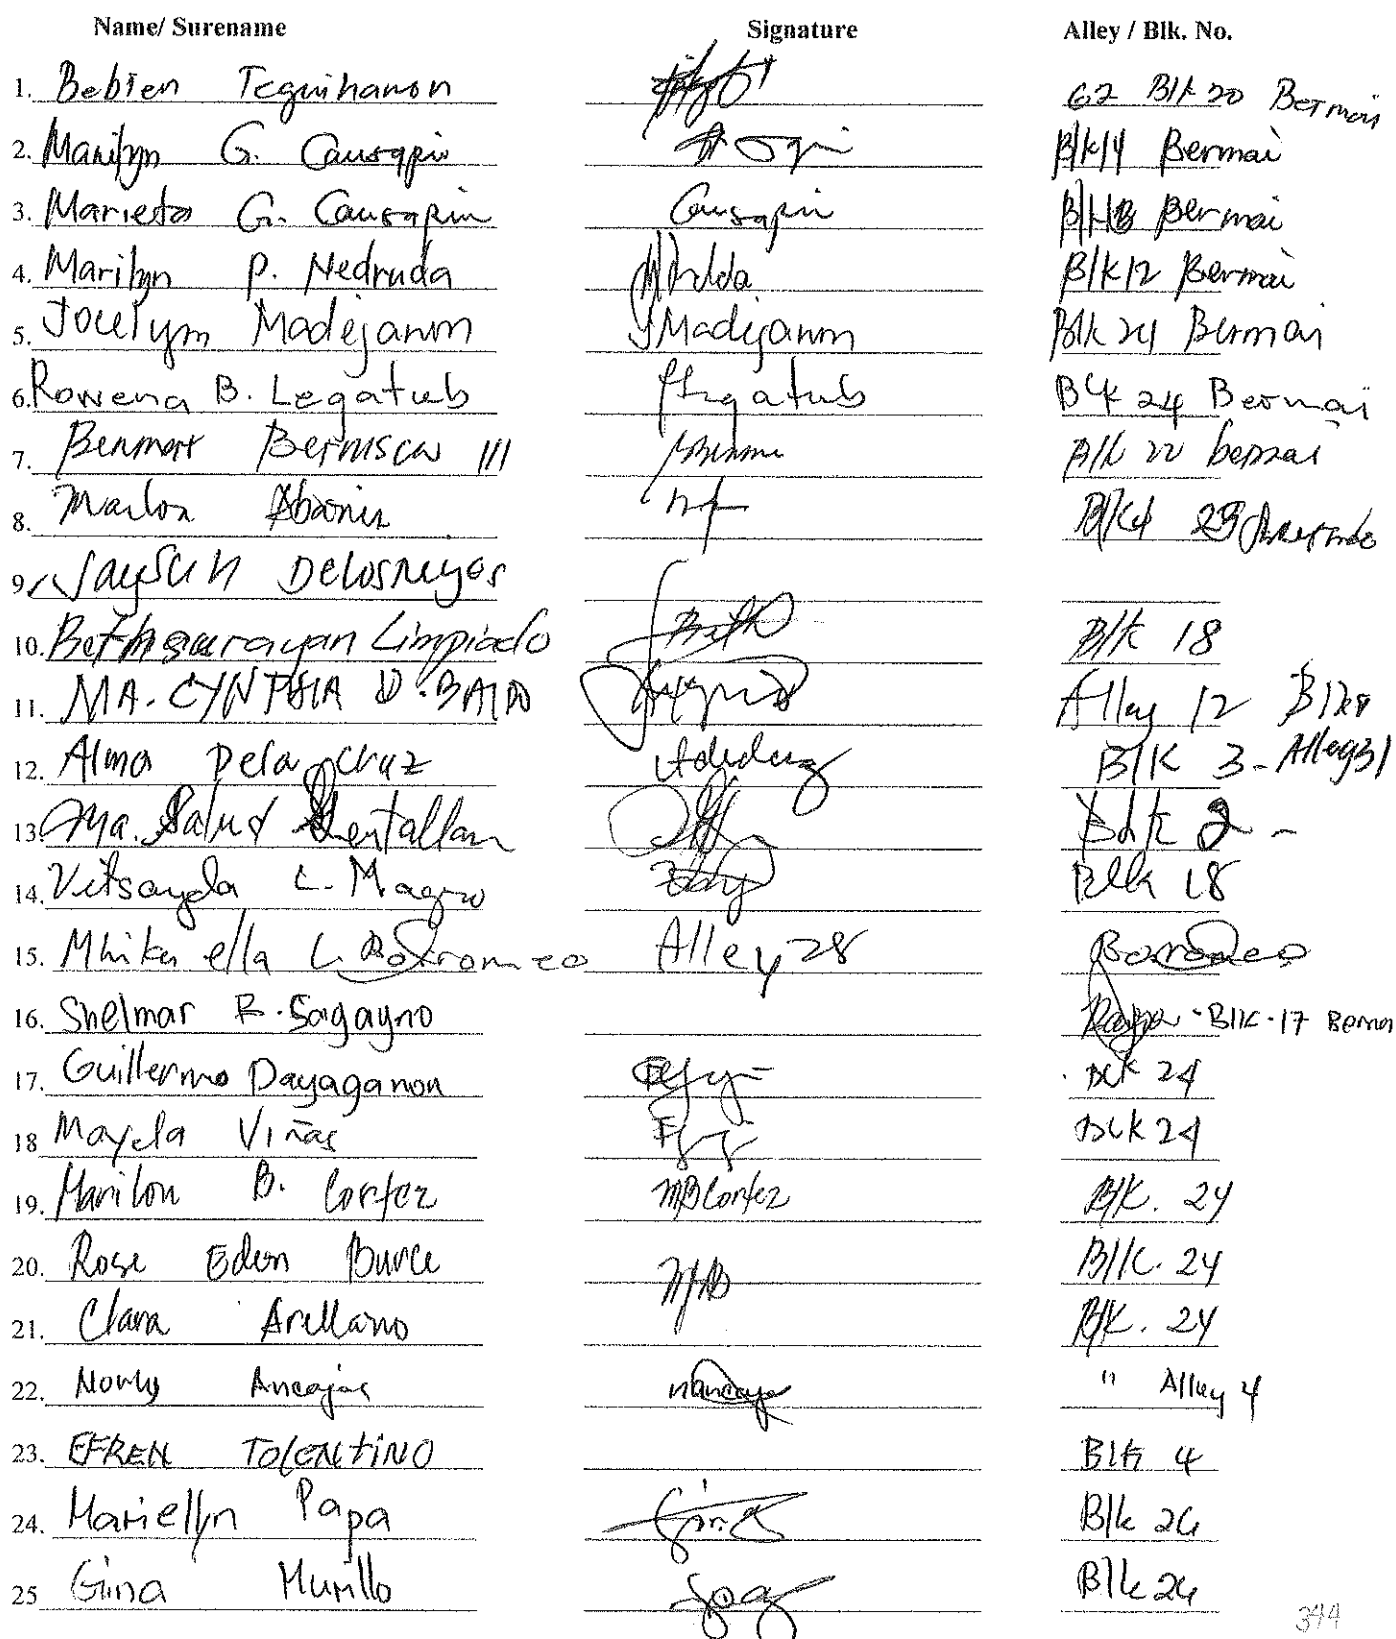 Name/ Surename Signature Alley / Blk. No.
1. Bebien Teguihanon 62 Blk 20 Bermai
2. Marilyn G. Causapin Blk 14 Bermai
3. Marieta G. Causapin Causapin Bermai
4. Marilyn P. Nedruda Blk 12 Bermai
5. Jocelyn Madejanon JMadejanon Blk 24 Bermai
6. Rowena B. Legatub Legatub Blk 24 Bermai
7. Benmort III Blk 22 bermai
8. Marlon Abanis 29
9. Jaysun Delosreyes
10. Limpiado Beth Blk 18
11. MA. CYNTHIA D. Alley 12
12. Alma Dela Cruz Blk 3 - Alley 31
13. Ma. Salud Blk 2 -
14. Vitsayda L. Magro Blk 18
15. Mhika ella L. Borromeo Alley 28 Borromeo
16. Shelmar R. Sagayno Blk - 17
17. Guillermo Dayaganon Blk 24
18 Mayda Viñas Blk 24
19. Marilou B. Cortez MBCortez Blk. 24
20. Rose Eden Burce Blk. 24
21. Clara Arellano Blk. 24
22. Ancajas " Alley 4
23. EFREN TOLENTINO Blk 4
24. Mariellyn Papa Blk 24
25 Gina Murillo Blk 24
344